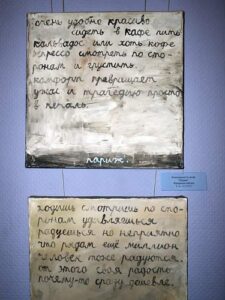 очень удобно красиво
сидеть в кафе пить
кальвадос или хоть кофе
эспрессо смотреть по сто-
ронам и грустить.
комфорт превращает
ужас и трагедию просто
в печаль.
париж.
ходишь смотришь по сто-
ронам удивляешься
радуешься но неприятно
что рядом ещё миллион
человек тоже радуются
от этого своя радость
почему-то сразу дешевле.